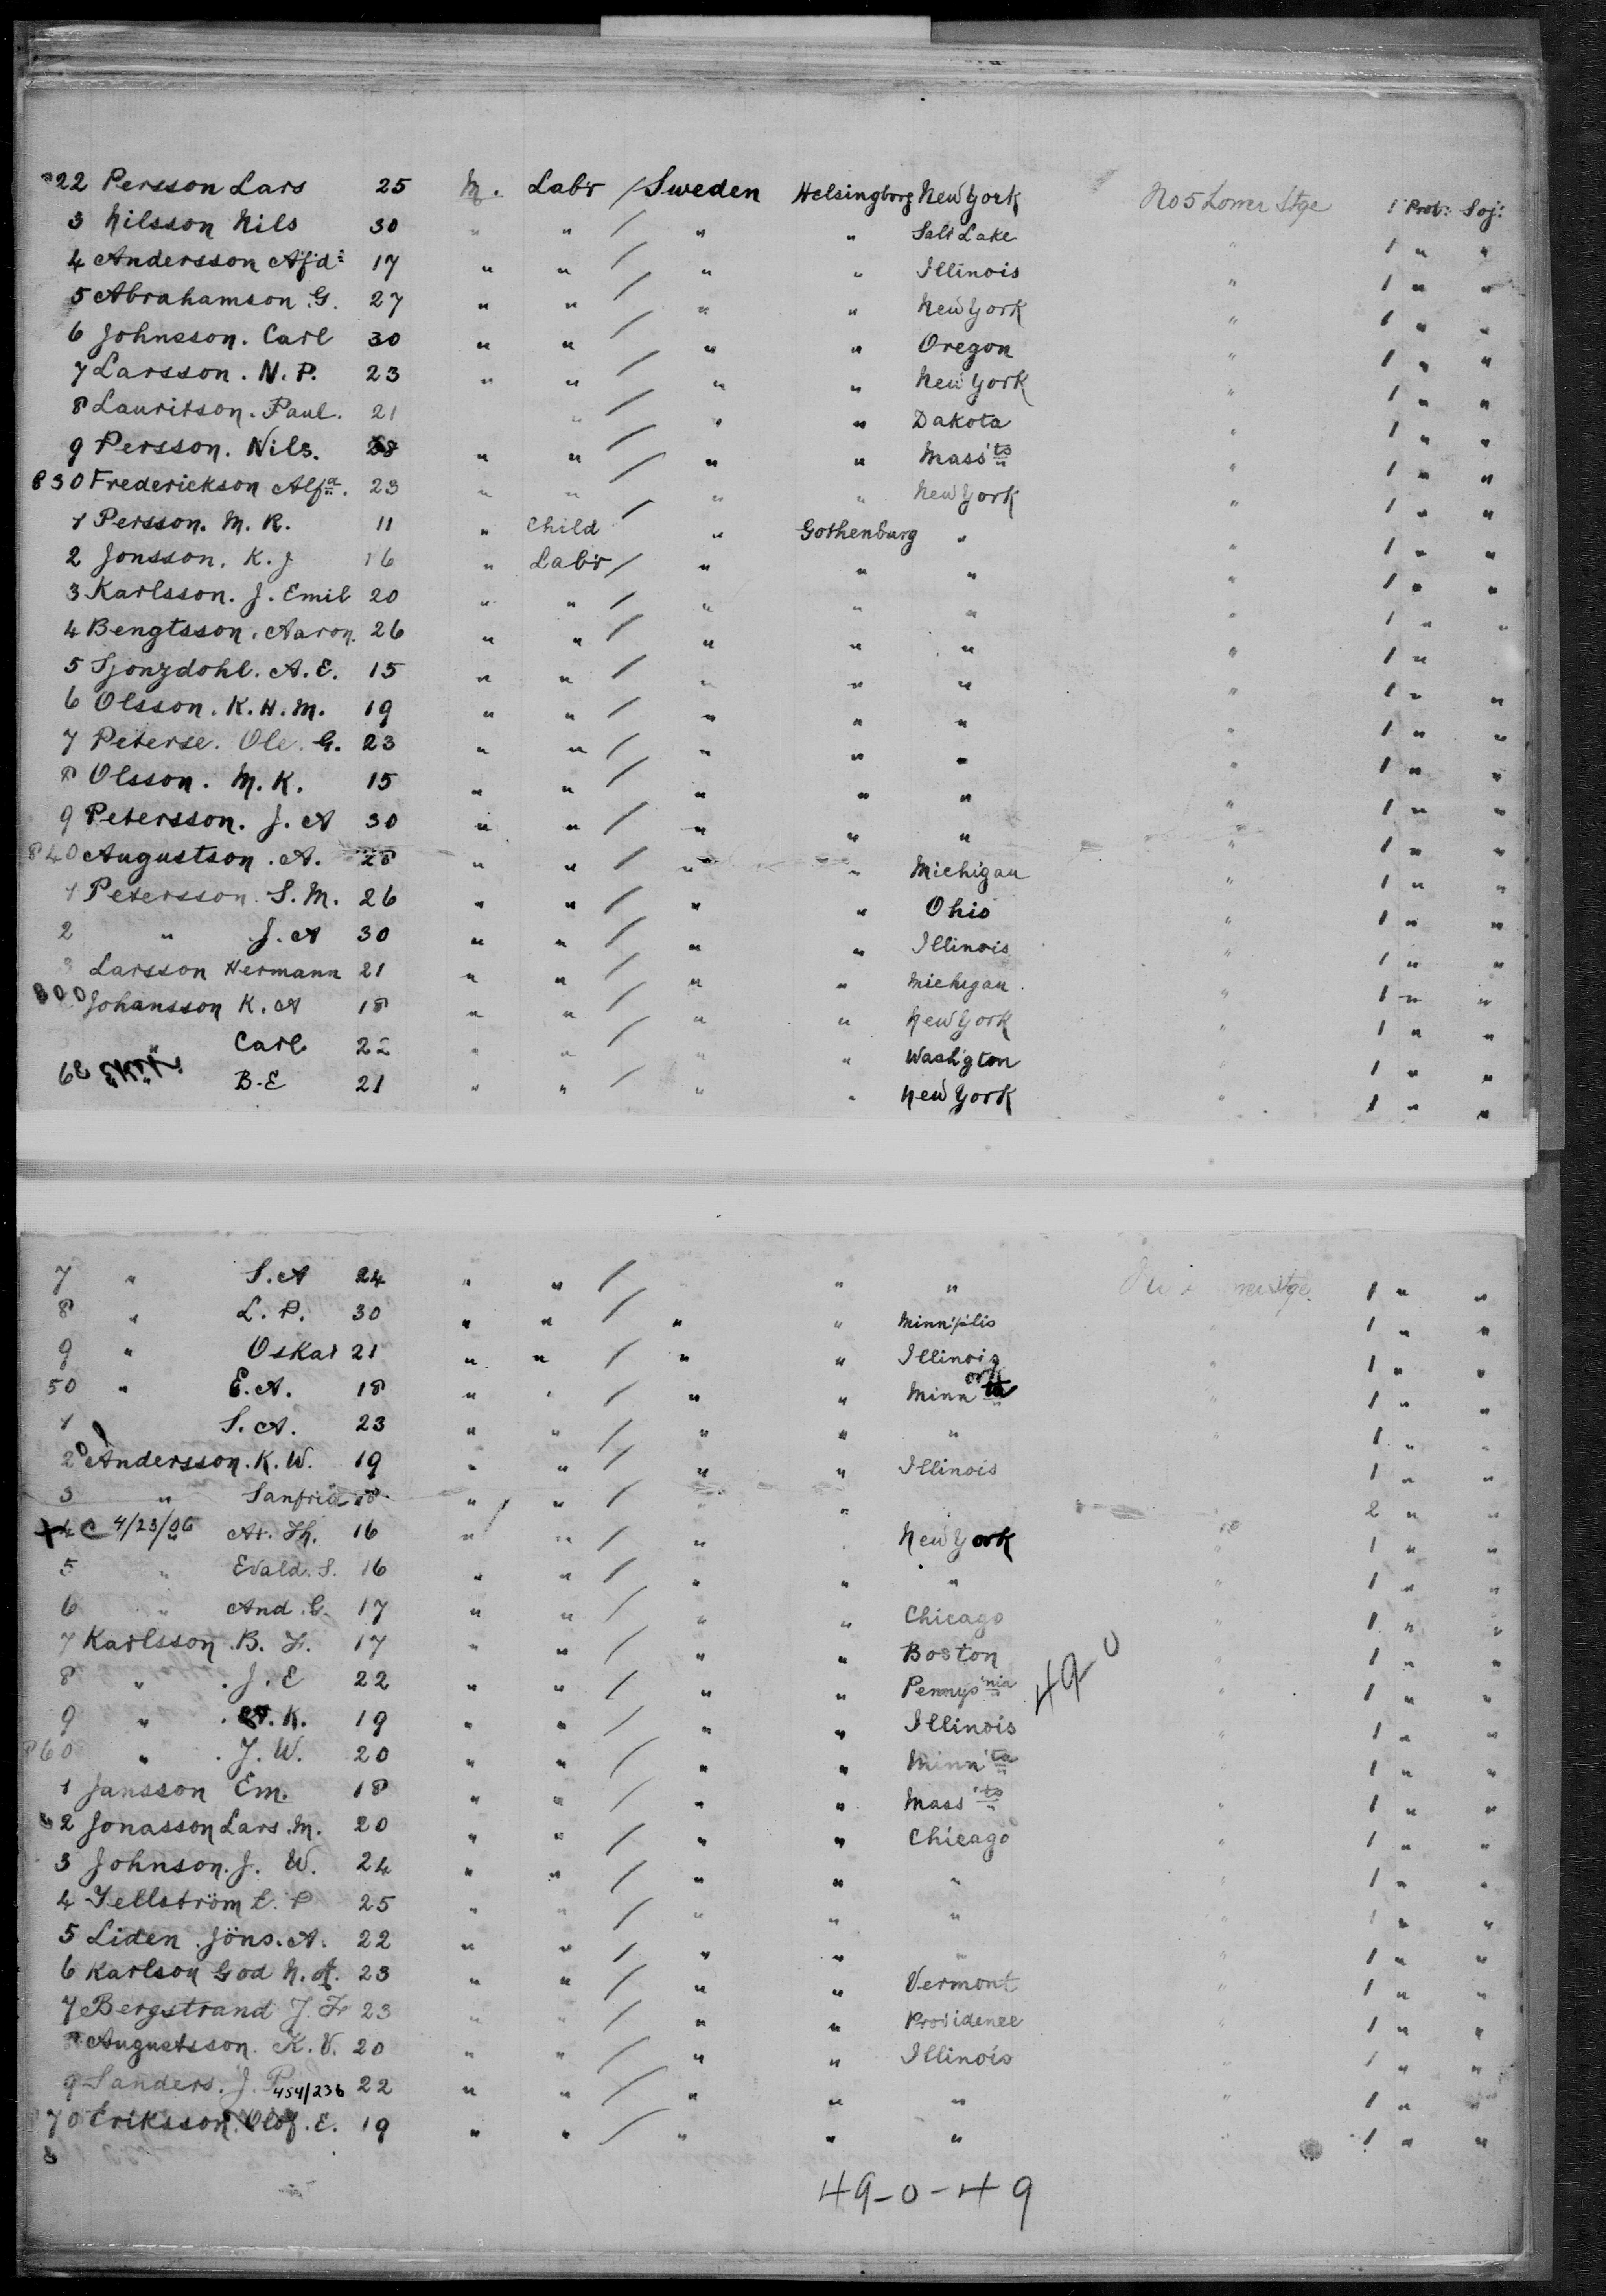 822 Persson Lars 25 M. Lab'r / Sweden Helsingborg New York No 5 Lower Stge 1 Prot: Soj:
3 Nilsson Nils 30 " " / " " Salt Lake " 1 " "
4 Andersson Afd: 17 " " / " " Illinois " 1 " "
5 Abrahamson G. 27 " " / " " New York " 1 " "
6 Johnsson. Carl 30 " " / " " Oregon " 1 " "
7 Larsson. N. P. 23 " " / " " New York " 1 " "
8 Lauritson. Paul. 21 " / " " Dakota " 1 " "
9 Persson. Nils. 28 " " / " " Mass'ts " 1 " "
830 Frederickson Alf'd. 23 " " / " " New York " 1 " "
1 Persson. M. K. 11 " Child " Gothenburg " " 1 " "
2 Jonsson. K. J 16 " Lab'r / " " " " 1 " "
3 Karlsson. J. Emil 20 " " / " " " " 1 " "
4 Bengtsson. Aaron. 26 " " / " " " " 1 "
5 Sjonzdohl. A. E. 15 " " / " " " " 1 " "
6 Olsson. K. H. M. 19 " " / " " " " 1 " "
7 Peterse. Ole. G. 23 " " / " " " " 1 " "
8 Olsson. M. K. 15 " " / " " " " 1 " "
9 Petersson. J. A 30 " " / " " " " 1 " "
840 Augustson. A. 28 " " / " " Michigan " 1 " "
1 Petersson. S. M. 26 " " / " " Ohio " 1 " "
2 " J. A 30 " " / " " Illinois " 1 " "
3 Larsson Hermann 21 " " / " " Michigan. " 1 " "
Johansson K. A 18 " " / " " New York " 1 " "
" Carl 22 " " / " " Wash'gton " 1 " "
" B. E 21 " " / " " New York " 1 " "
7 " S. A 24 " " / " " " Stge 1 " "
8 " L. P. 30 " " / " " Minn'plis " 1 " "
9 " Oskar 21 " " / " " Illinois " 1 " "
50 " E. A. 18 " " / " " Minn'ta " 1 " "
1 S. A. 23 " " / " " " " 1 " "
2 Andersson. K. W. 19 " " / " " Illinois 1 " "
3 " Sanfrid 18 " " / " 2 " "
4 C 4/23/06 " Ar. Th. 16 " " / " New York " 1 " "
5 " Evald. S. 16 " " / " " " " 1 " "
6 " And. G. 17 " " / " " Chicago " 1 " "
7 Karlsson. B. F. 17 " " / " " Boston 1 " "
8 " J. E 22 " " / " " Pennys'nia 49-0 " 1 " "
9 " A. K. 19 " " / " " Illinois " 1 " "
860 " J. W. 20 " " / " " Minn'ta " 1 " "
1 Jansson Em. 18 " " / " " Mass'ts 1 " "
2 Jonasson Lars. M. 20 " " / " " Chicago " 1 " "
3 Johnson. J. W. 24 " " / " " " " 1 " "
4 Jellström L. P 25 " " / " " " " 1 " "
5 Liden. Jöns. A. 22 " " / " " " " 1 " "
6 Karlson God N. A. 23 " " / " " Vermont " 1 " "
7 Bergstrand J. Fr 23 " " / " " Providence " 1 " "
8 Augustsson. K. V. 20 " " / " " Illinois " 1 " "
9 Sanders. J. P 454/236 22 " " / " " " " 1 " "
70 Eriksson. Olof. E. 19 " " / " " " " 1 " "
49-0-49